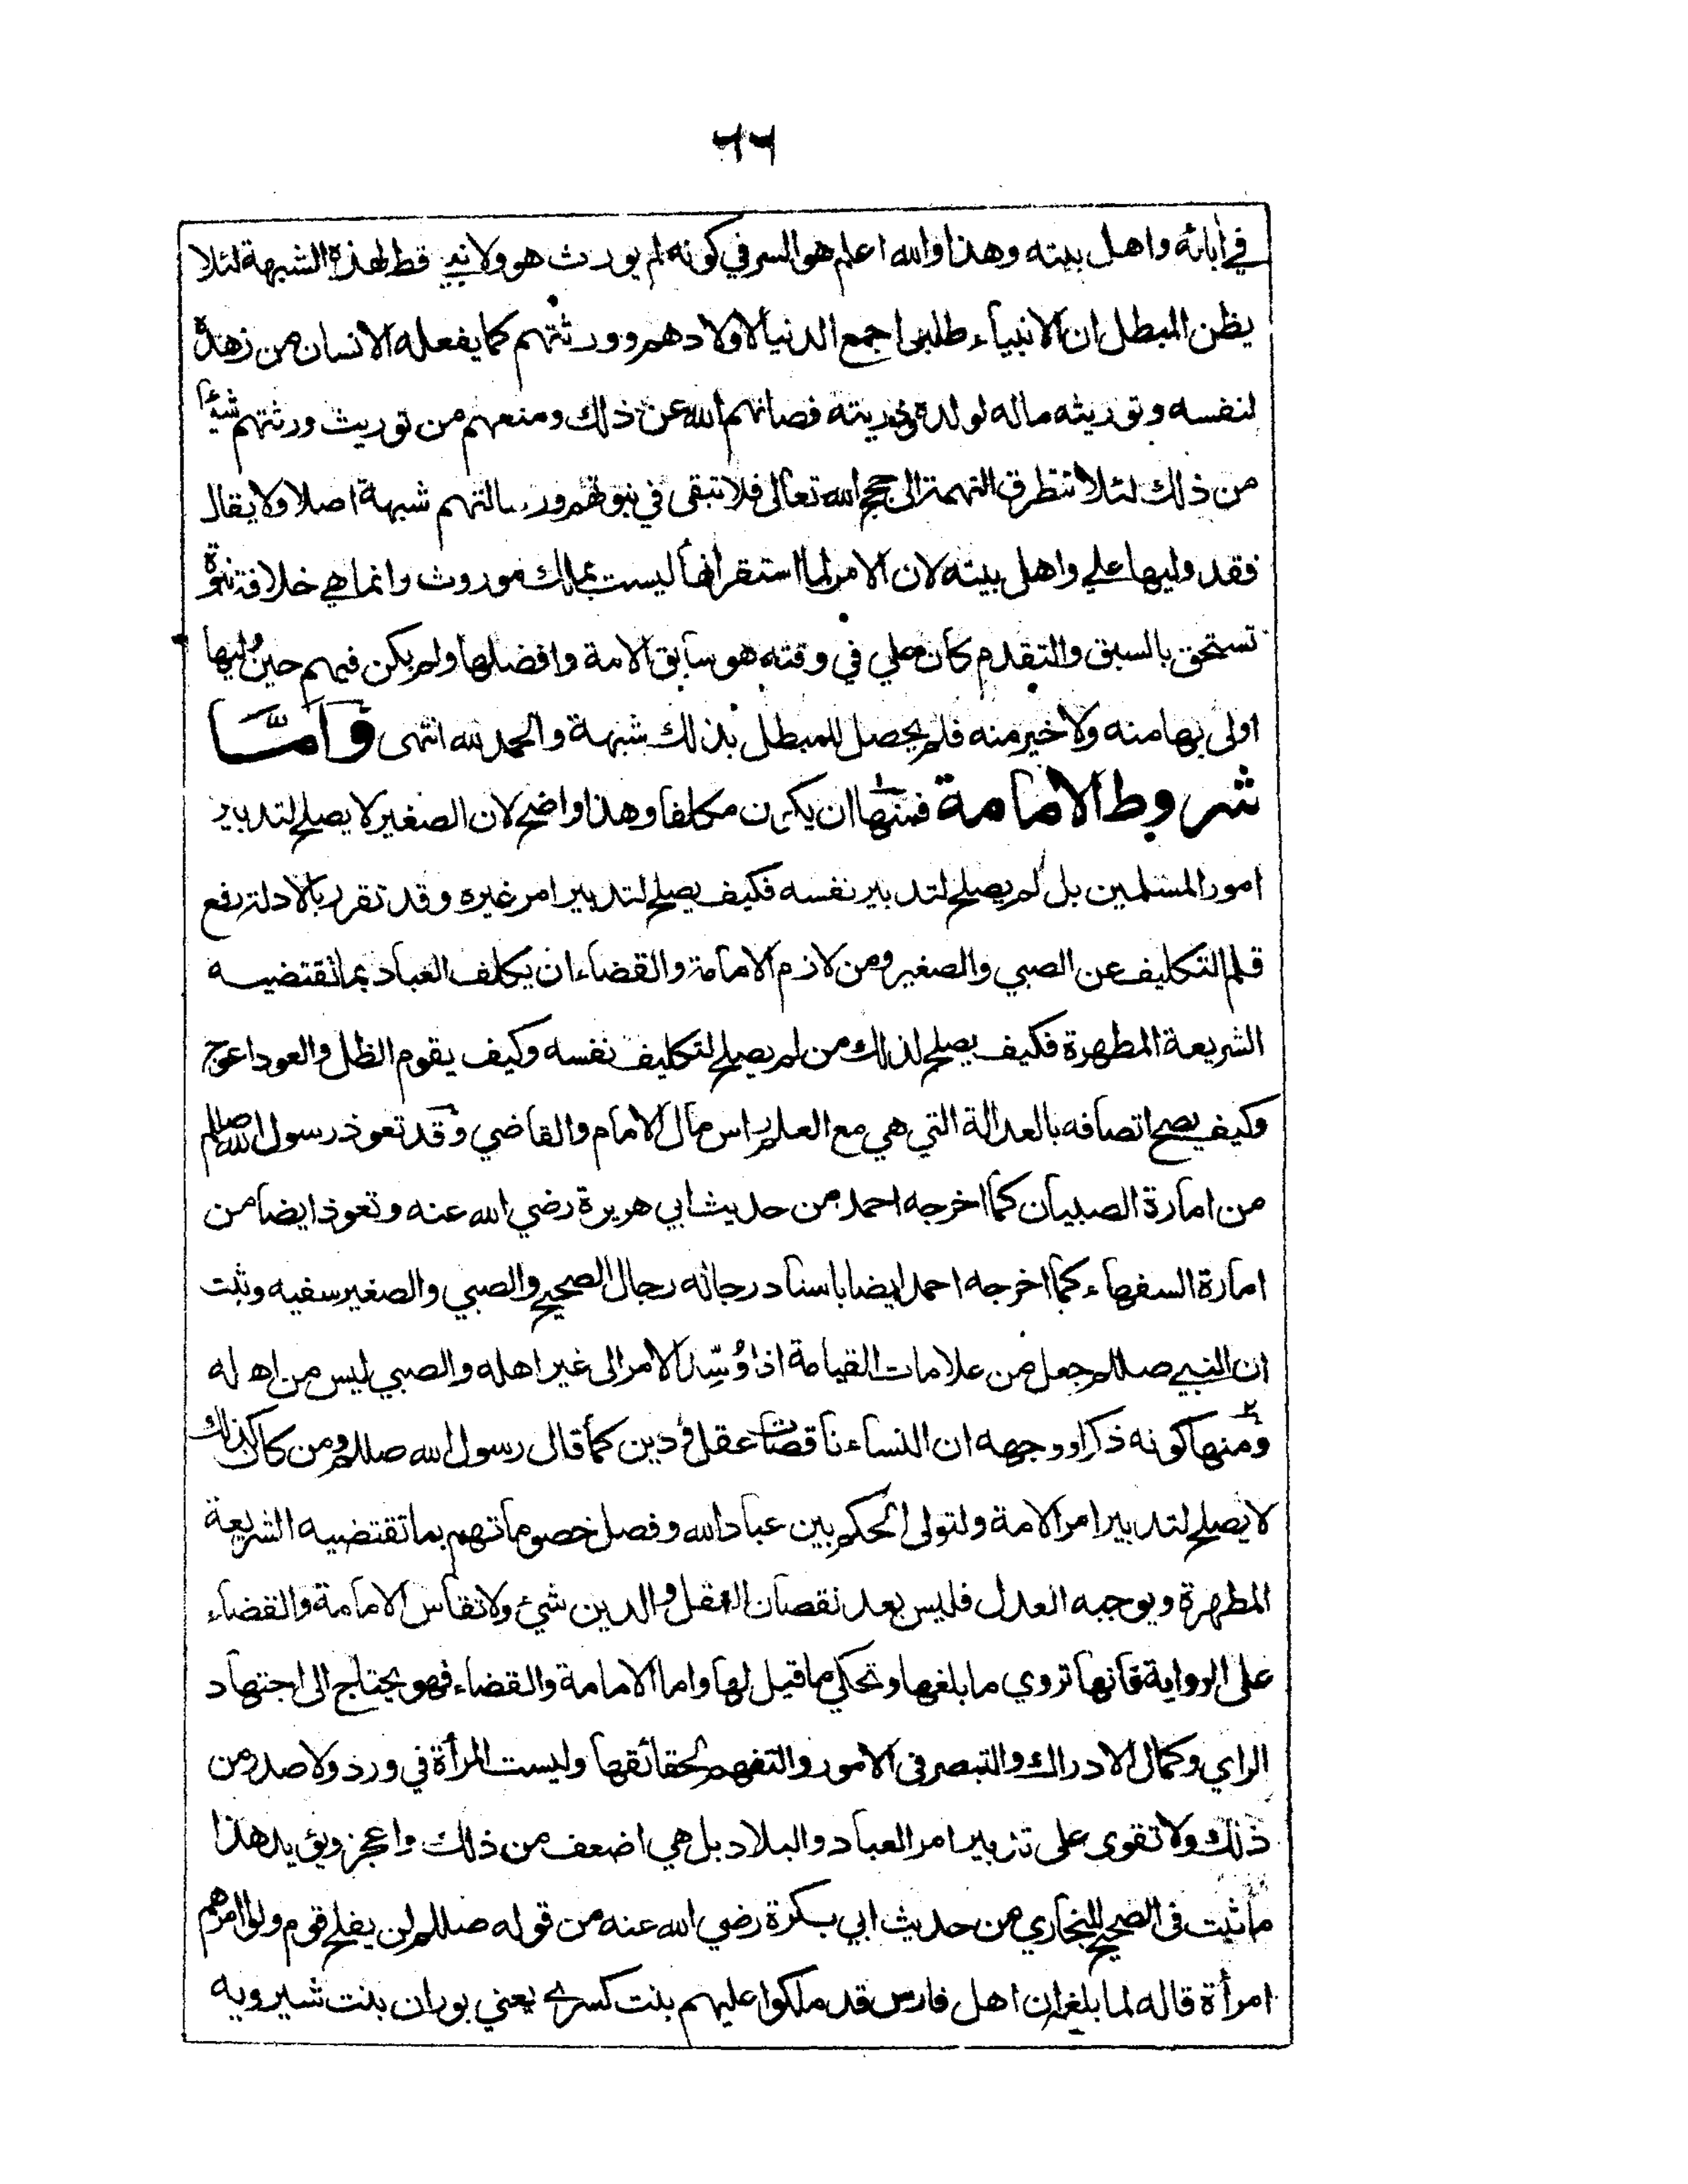 ٤٤
في أبائه واهل بيته وهذا والله اعلم هو السر في كونه لم يورث هو ولا نبي قط لهذه الشبهة لئلا
يظن المبطل ان الانبياء طلبوا جمع الدنيا لاولادهم وورثتهم كما يفعله الانسان من زهده
لنفسه وتوريثه ماله لولده وذريته فصانهم الله عن ذلك ومنعهم من توريث ورثتهم شيئا
من ذلك لئلا تتطرق التهمة الى حجج الله تعالى فلا تبقى في نبوتهم ورسالتهم شبهة اصلا ولا يقال
فقد وليها علي واهل بيته لان الامر لما استقر انها ليست بملك موروث وانما هي خلافة نبوة
تستحق بالسبق والتقدم كان علي في وقته هو سابق الامة وافضلها ولم يكن فيهم حين وليها
اولى بها منه ولا خير منه فلم يحصل للمبطل بذلك شبهة والحمد لله انتهى وامّا
شروط الامامة فمنها ان يكون مكلفا وهذا واضح لان الصغير لا يصلح لتدبير
امور المسلمين بل لم يصلح لتدبير نفسه فكيف يصلح لتدبير امر غيره وقد تقرر بالادلة رفع
قلم التكليف عن الصبي والصغير ومن لازم الامامة والقضاء ان يكلف العباد بما تقتضيه
الشريعة المطهرة فكيف يصلح لذلك من لم يصلح لتكليف نفسه وكيف يقوم الظل والعود اعوج
وكيف يصح اتصافه بالعدالة التي هي مع العلم راس مال الامام والقاضي وقد تعوذ رسول الله صللم
من امارة الصبيان كما اخرجه احمد من حديث ابي هريرة رضي الله عنه وتعوذ ايضا من
امارة السفهاء كما اخرجه احمد ايضا باسناد رجاله رجال الصحيح والصبي والصغير سفيه وثبت
ان النبي صللم جعل من علامات القيامة اذا وُسِّد الامر الى غير اهله والصبي ليس من اهله
ومنها ٢ كونه ذكرا ووجهه ان النساء ناقصات عقل ودين كما قال رسول الله صللم ومن كان كذلك
لا يصلح لتدبير امر الامة ولتولي الحكم بين عباد الله وفصل خصوماتهم بما تقتضيه الشريعة
المطهرة ويوجبه العدل فليس بعد نقصان العقل والدين شيء ولا تقاس الامامة والقضاء
على الرواية فانها تروي ما بلغها وتحكي ما قيل لها واما الامامة والقضاء فهو يحتاج الى اجتهاد
الراي وكمال الادراك والتبصر في الامور والتفهم لحقائقها وليست المرأة في ورد ولا صدر من
ذلك ولا تقوى على تدبير امر العباد والبلاد بل هي اضعف من ذلك واعجز ويؤيد هذا
ما ثبت في الصحيح للبخاري من حديث ابي بكرة رضي الله عنه من قوله صللم لن يفلح قوم ولوا امرهم
امرأة قاله لما بلغه ان اهل فارس قد ملكوا عليهم بنت كسرى يعني بوران بنت شيرويه